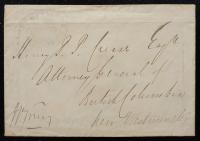 Henry P. P. Crease Esqre
Attorney General of
British Columbia
New Westminster